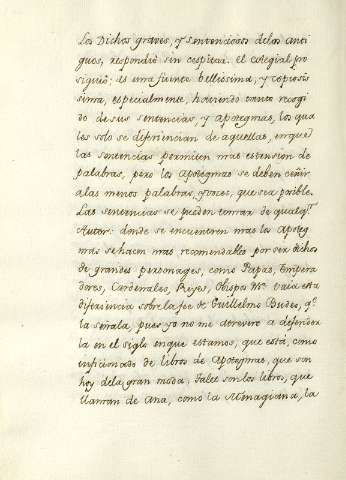 Los Dichos graves, y sentenciosos delos anti
guos, respondiò sin cespitar. el colegial pro
siguiò: es una fuente bellissima, y copiosis
sima, especialmente, haviendo tanto recogi
do de sus sentencias, y Apotegmas, los qua
les solo se diferiencian de aquellas, en que
las sentencias permiten mas estension de
palabras, pero los Apotegmas se deben ceñir
alas menos palabras, y voces, que sea posible.
Las sentencias se pueden tomar de qualq.r
Autor: donde se encuentren mas los Apoteg
mas se hacen mas recomendables por ser dichos
de grandes personages, como Papas, Empera
dores, Cardenales, Reyes, Obispos &c. vaia esta
diferiencia sobre la feè de Guillelmo Budeo, q.e
la señala, pues yo no me atrevere a defender
la en el siglo en que estamos, que està, como
inficionado de libros de Apotegmas, que son
hoy dela gran moda. Tales son los libros, que
llaman de Ana, como la Menagiana, la